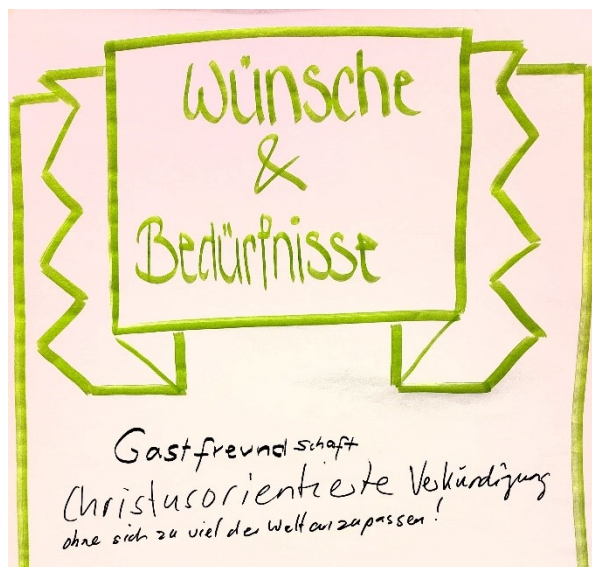 Wünsche
&
Bedürfnisse
Gastfreundschaft
Christusorientierte Verkündigung
ohne sich zu viel der Welt anzupassen!